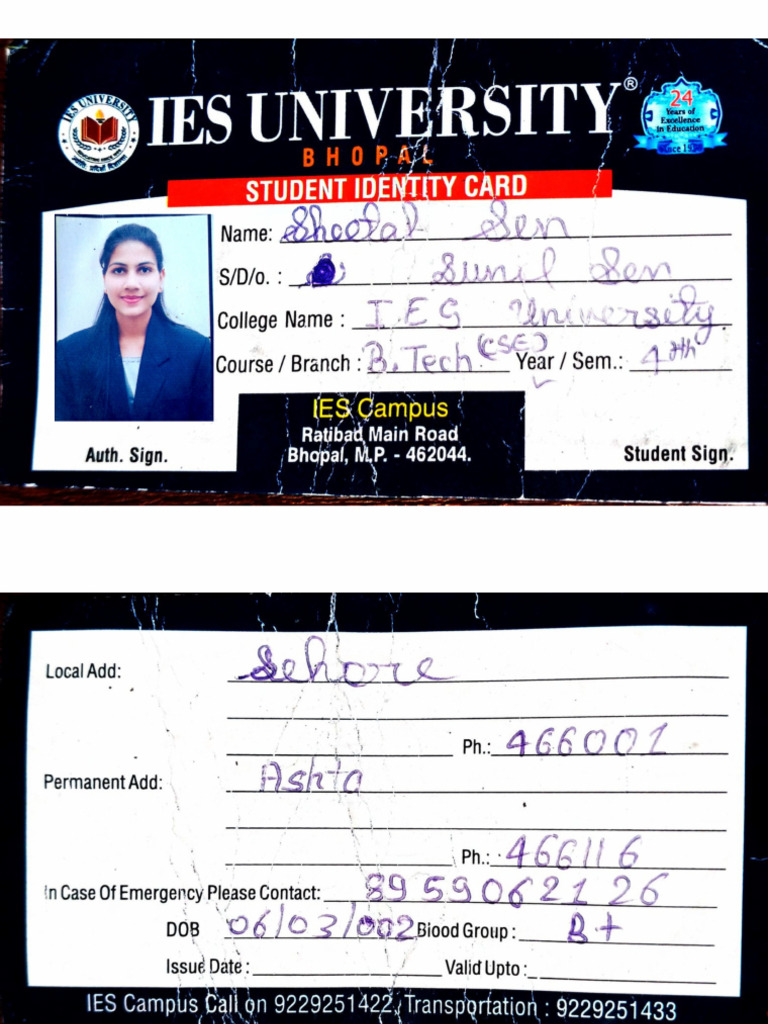 IES UNIVERSITY®
BHOPAL
IES UNIVERSITY
24
Years of
Excellence
in Education
STUDENT IDENTITY CARD
Name: Sheetal Sen
S/D/o. : Sunil Sen
College Name : I.E.S University
Course / Branch : B.Tech (CSE) Year / Sem.: 4th
IES Campus
Ratibad Main Road
Bhopal, M.P. - 462044.
Auth. Sign. Student Sign.
Local Add: Sehore
Ph.: 466001
Permanent Add: Ashta
Ph.: 466116
In Case Of Emergency Please Contact: 8959062126
DOB 06/03/002 Blood Group : B+
Issue Date : Valid Upto :
IES Campus Call on 9229251422, Transportation : 9229251433